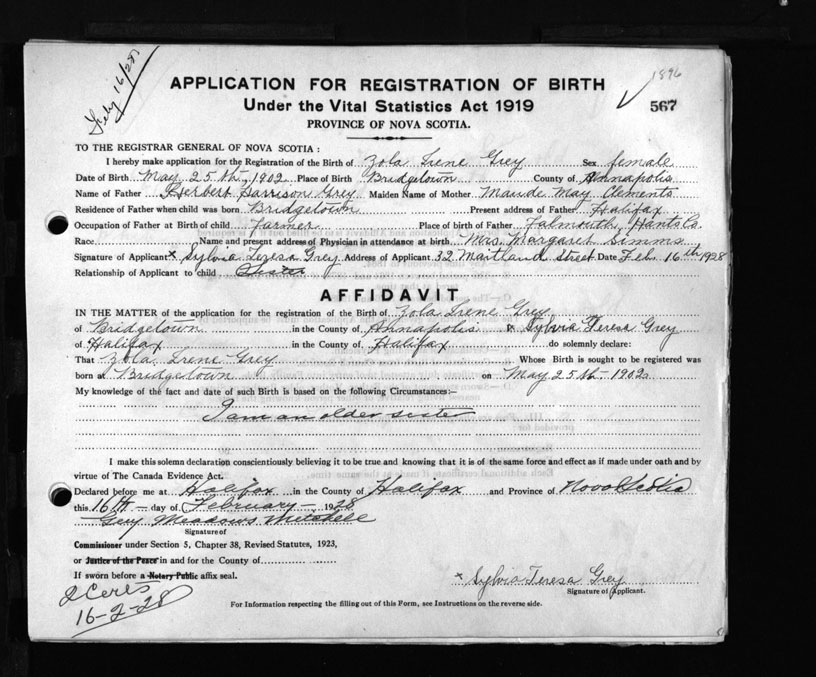 Feby 16/28
1896
APPLICATION FOR REGISTRATION OF BIRTH
Under the Vital Statistics Act 1919
567
PROVINCE OF NOVA SCOTIA.
TO THE REGISTRAR GENERAL OF NOVA SCOTIA :
I hereby make application for the Registration of the Birth of Zola Irene Grey Sex female
Date of Birth May 25th 1902 Place of Birth Bridgetown County of Annapolis
Name of Father Herbert Harrison Grey Maiden Name of Mother Maude May Clements
Residence of Father when child was born Bridgetown Present address of Father Halifax
Occupation of Father at Birth of child Farmer Place of birth of Father Falmouth, Hants Co.
Race Name and present address of Physician in attendance at birth Mrs. Margaret Simms
Signature of Applicant x Sylvia Teresa Grey Address of Applicant 32 Maitland Street Date Feb. 16th 1928
Relationship of Applicant to child Sister
AFFIDAVIT
IN THE MATTER of the application for the registration of the Birth of Zola Irene Grey
of Bridgetown in the County of Annapolis I, Sylvia Teresa Grey
of Halifax in the County of Halifax do solemnly declare:
That Zola Irene Grey Whose Birth is sought to be registered was
born at Bridgetown on May 25th 1902
My knowledge of the fact and date of such Birth is based on the following Circumstances:—
I am an older sister
I make this solemn declaration conscientiously believing it to be true and knowing that it is of the same force and effect as if made under oath and by
virtue of The Canada Evidence Act.
Declared before me at Halifax in the County of Halifax and Province of Nova Scotia
this 16th day of February 1928
Meadows Mitchell
Signature of
Commissioner under Section 5, Chapter 38, Revised Statutes, 1923,
or Justice of the Peace in and for the County of
If sworn before a Notary Public affix seal.
x Sylvia Teresa Grey
Signature of Applicant.
2 Certs
16-2-28
For Information respecting the filling out of this Form, see Instructions on the reverse side.